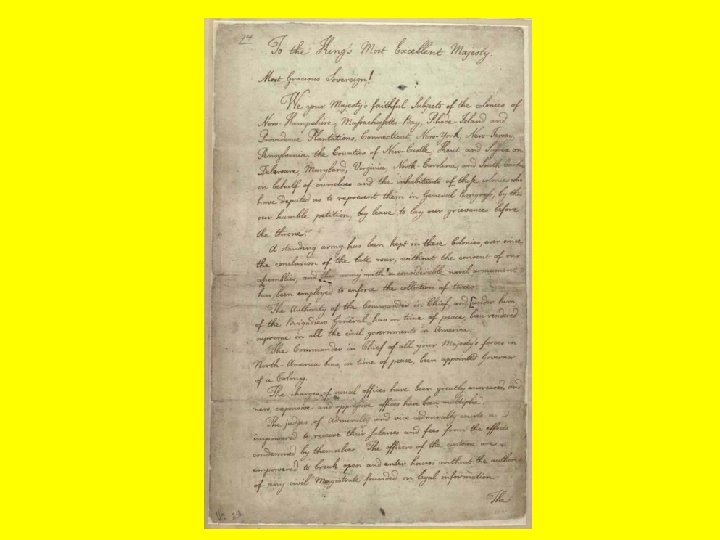 To the King's Most Excellent Majesty.
Most Gracious Sovereign!
We your Majesty's faithful Subjects of the colonies of
New-Hampshire, Massachusetts Bay, Rhode-Island and
Providence Plantations, Connecticut, New-York, New-Jersey,
Pennsylvania the Counties of New-Castle Kent and Sussex on
Delaware, Maryland, Virginia, North Carolina, and South Carolina
in behalf of ourselves and the inhabitants of these colonies who
have deputed us to represent them in General Congress, by this
our humble petition, beg leave to lay our grievances before
the throne.
A standing army has been kept in these Colonies, ever since
the conclusion of the late war, without the consent of our
assemblies; and this army with a considerable naval armament
has been employed to enforce the collection of taxes.
The Authority of the Commander in Chief, and under him
of the Brigadiers General has in time of peace, been rendered
supreme in all the civil governments in America.
The Commander in Chief of all your Majesty's forces in
North-America has, in time of peace, been appointed Governor
of a Colony.
The charges of usual offices have been greatly increased, and
new, expensive and oppressive offices have been multiplied.
The judges of Admiralty and vice admiralty courts are
impowered to receive their salaries and fees from the effects
condemned by themselves. The officers of the customs are
empowered to break open and enter houses without the authority
of any civil Magistrate founded on legal information.
The